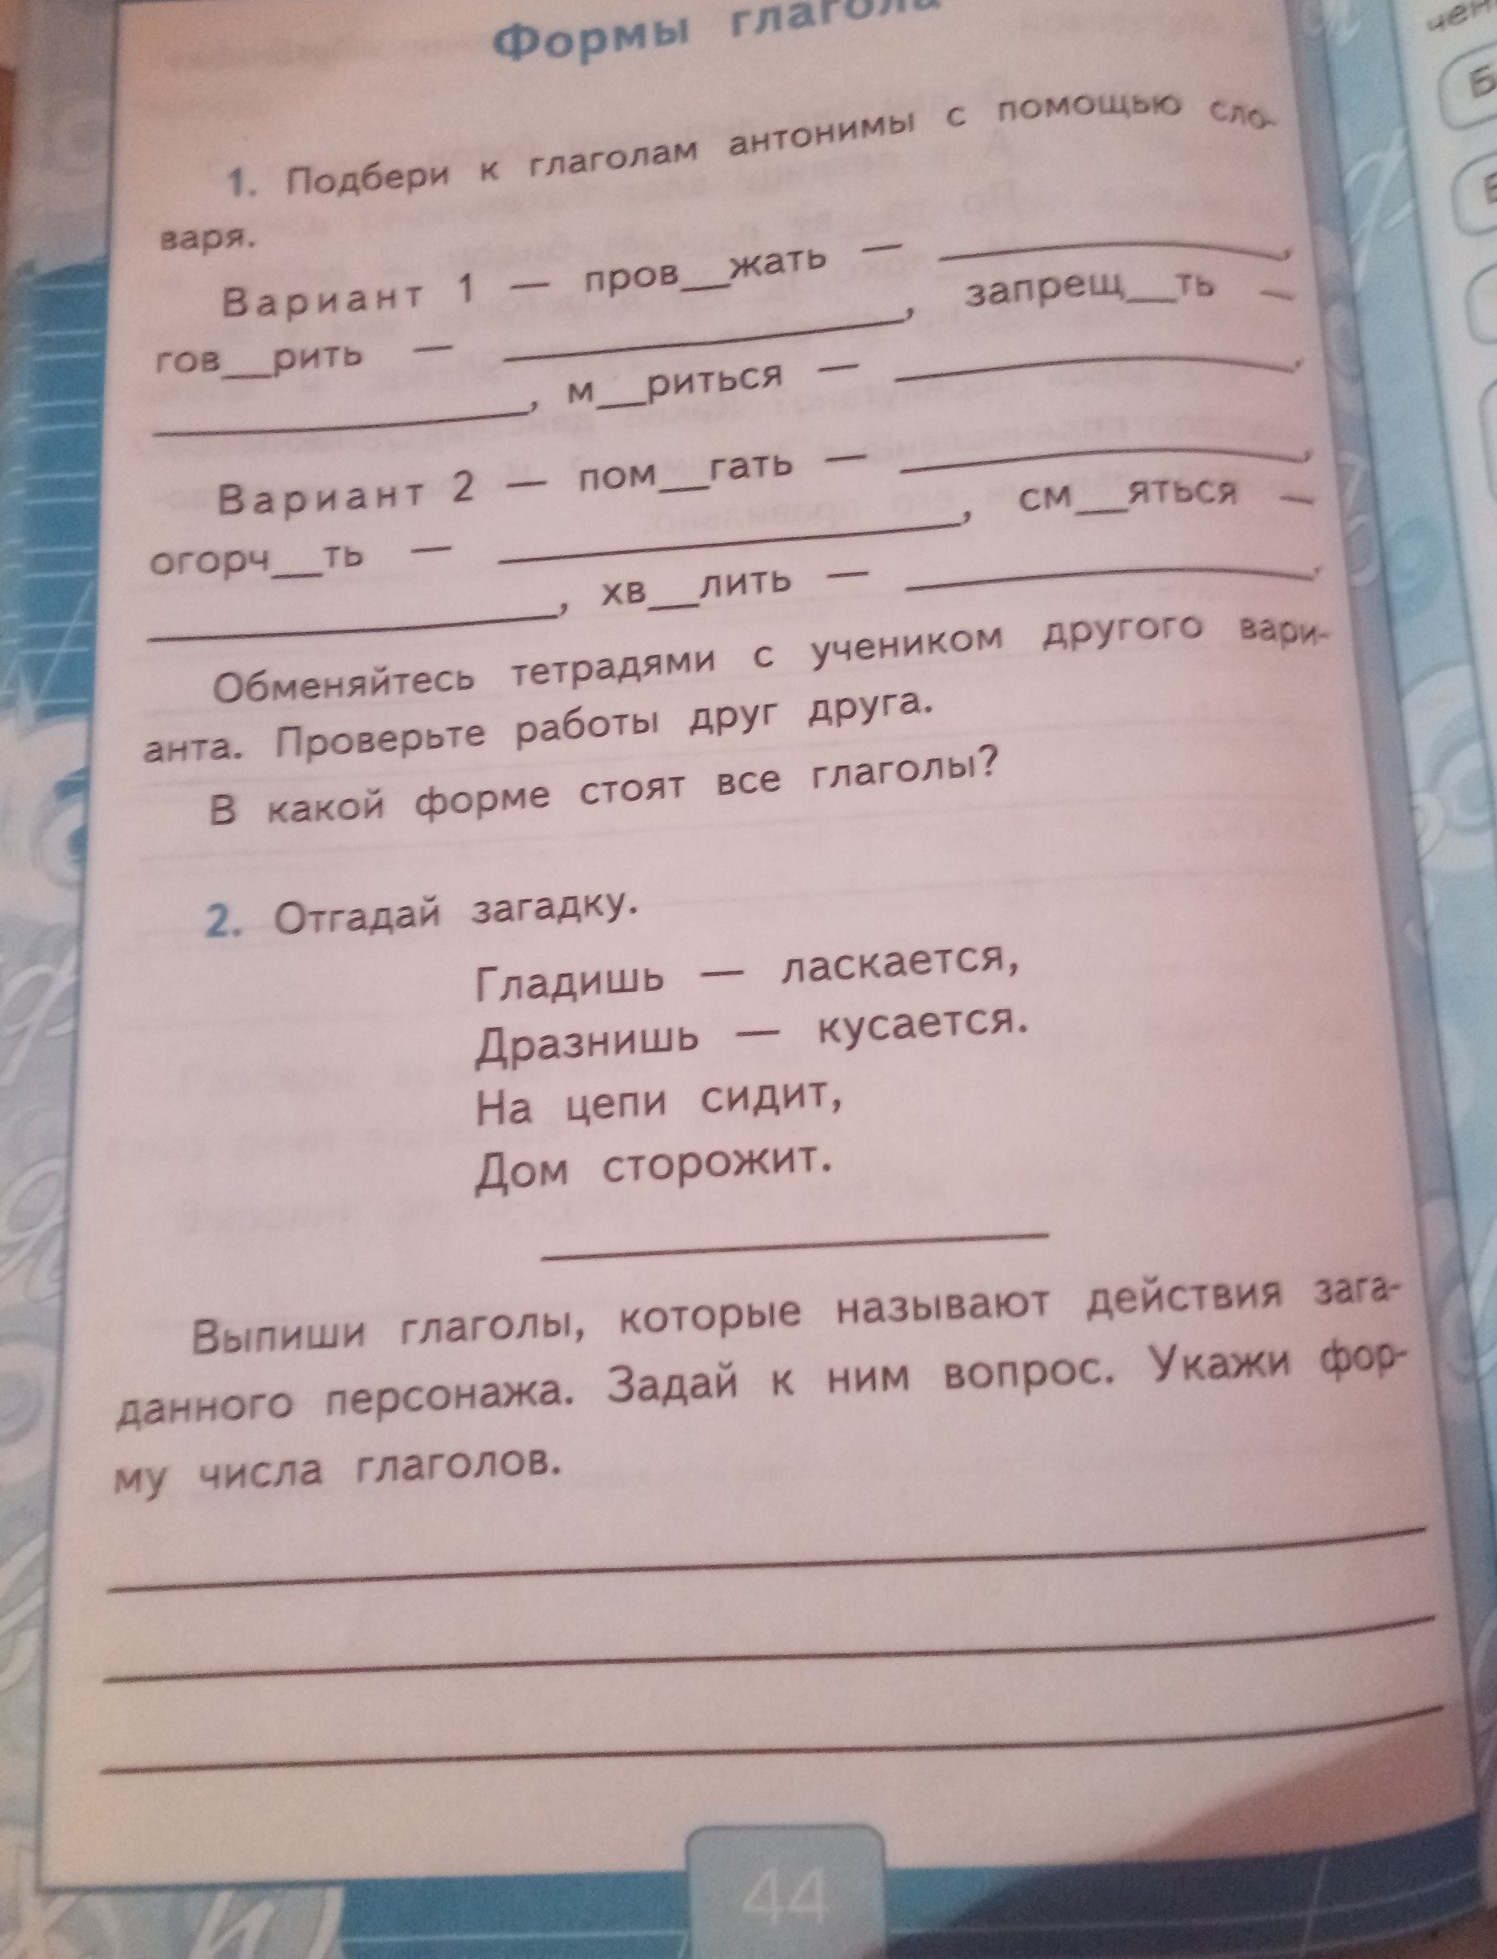 Формы глагола
1. Подбери к глаголам антонимы с помощью сло-
варя.
Вариант 1 — пров__жать — ____________,
гов__рить — ____________, запрещ__ть —
____________, м__риться — ____________.
Вариант 2 — пом__гать — ____________,
огорч__ть — ____________, см__яться —
____________, хв__лить — ____________.
Обменяйтесь тетрадями с учеником другого вари-
анта. Проверьте работы друг друга.
В какой форме стоят все глаголы?
2. Отгадай загадку.
Гладишь — ласкается,
Дразнишь — кусается.
На цепи сидит,
Дом сторожит.
Выпиши глаголы, которые называют действия зага-
данного персонажа. Задай к ним вопрос. Укажи фор-
му числа глаголов.
44